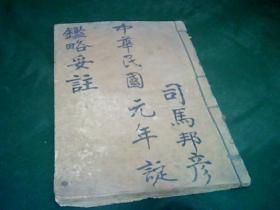 司馬邦彥
中華民國元年誌
鑑略妥註